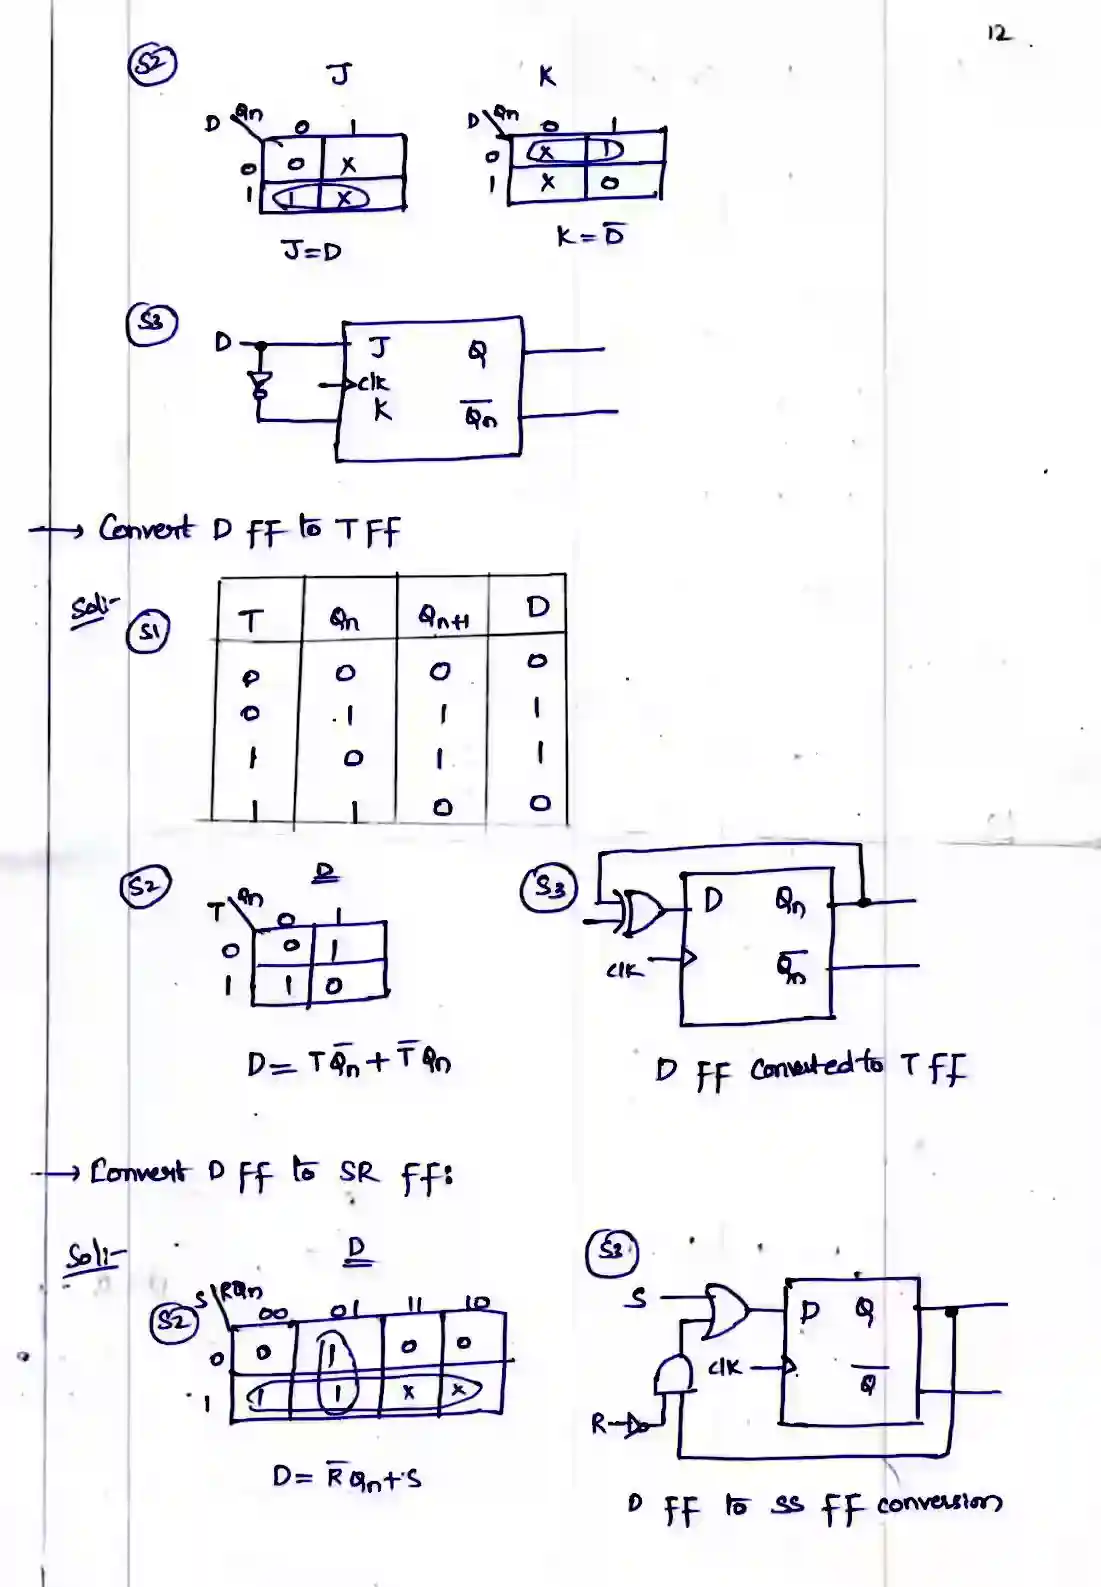 12
S2
J K
D Qn 0 1 D Qn 0 1
0 0 X 0 X 1
1 1 X 1 X 0
J=D K=D̅
S3
D J Q
clk
K Q̅n
→ Convert D FF to T FF
Sol:-
S1
T Qn Qn+1 D
0 0 0 0
0 1 1 1
1 0 1 1
1 1 0 0
S2 D
T Qn 0 1
0 0 1
1 1 0
D= TQ̅n + T̅Qn
S3
D Qn
clk Q̅n
D FF Converted to T FF
→ Convert D FF to SR FF:
Sol:-
S2 D
S RQn 00 01 11 10
0 0 1 0 0
1 1 1 X X
D= R̅Qn+S
S3
S D Q
clk Q̅
R
D FF to SS FF conversion